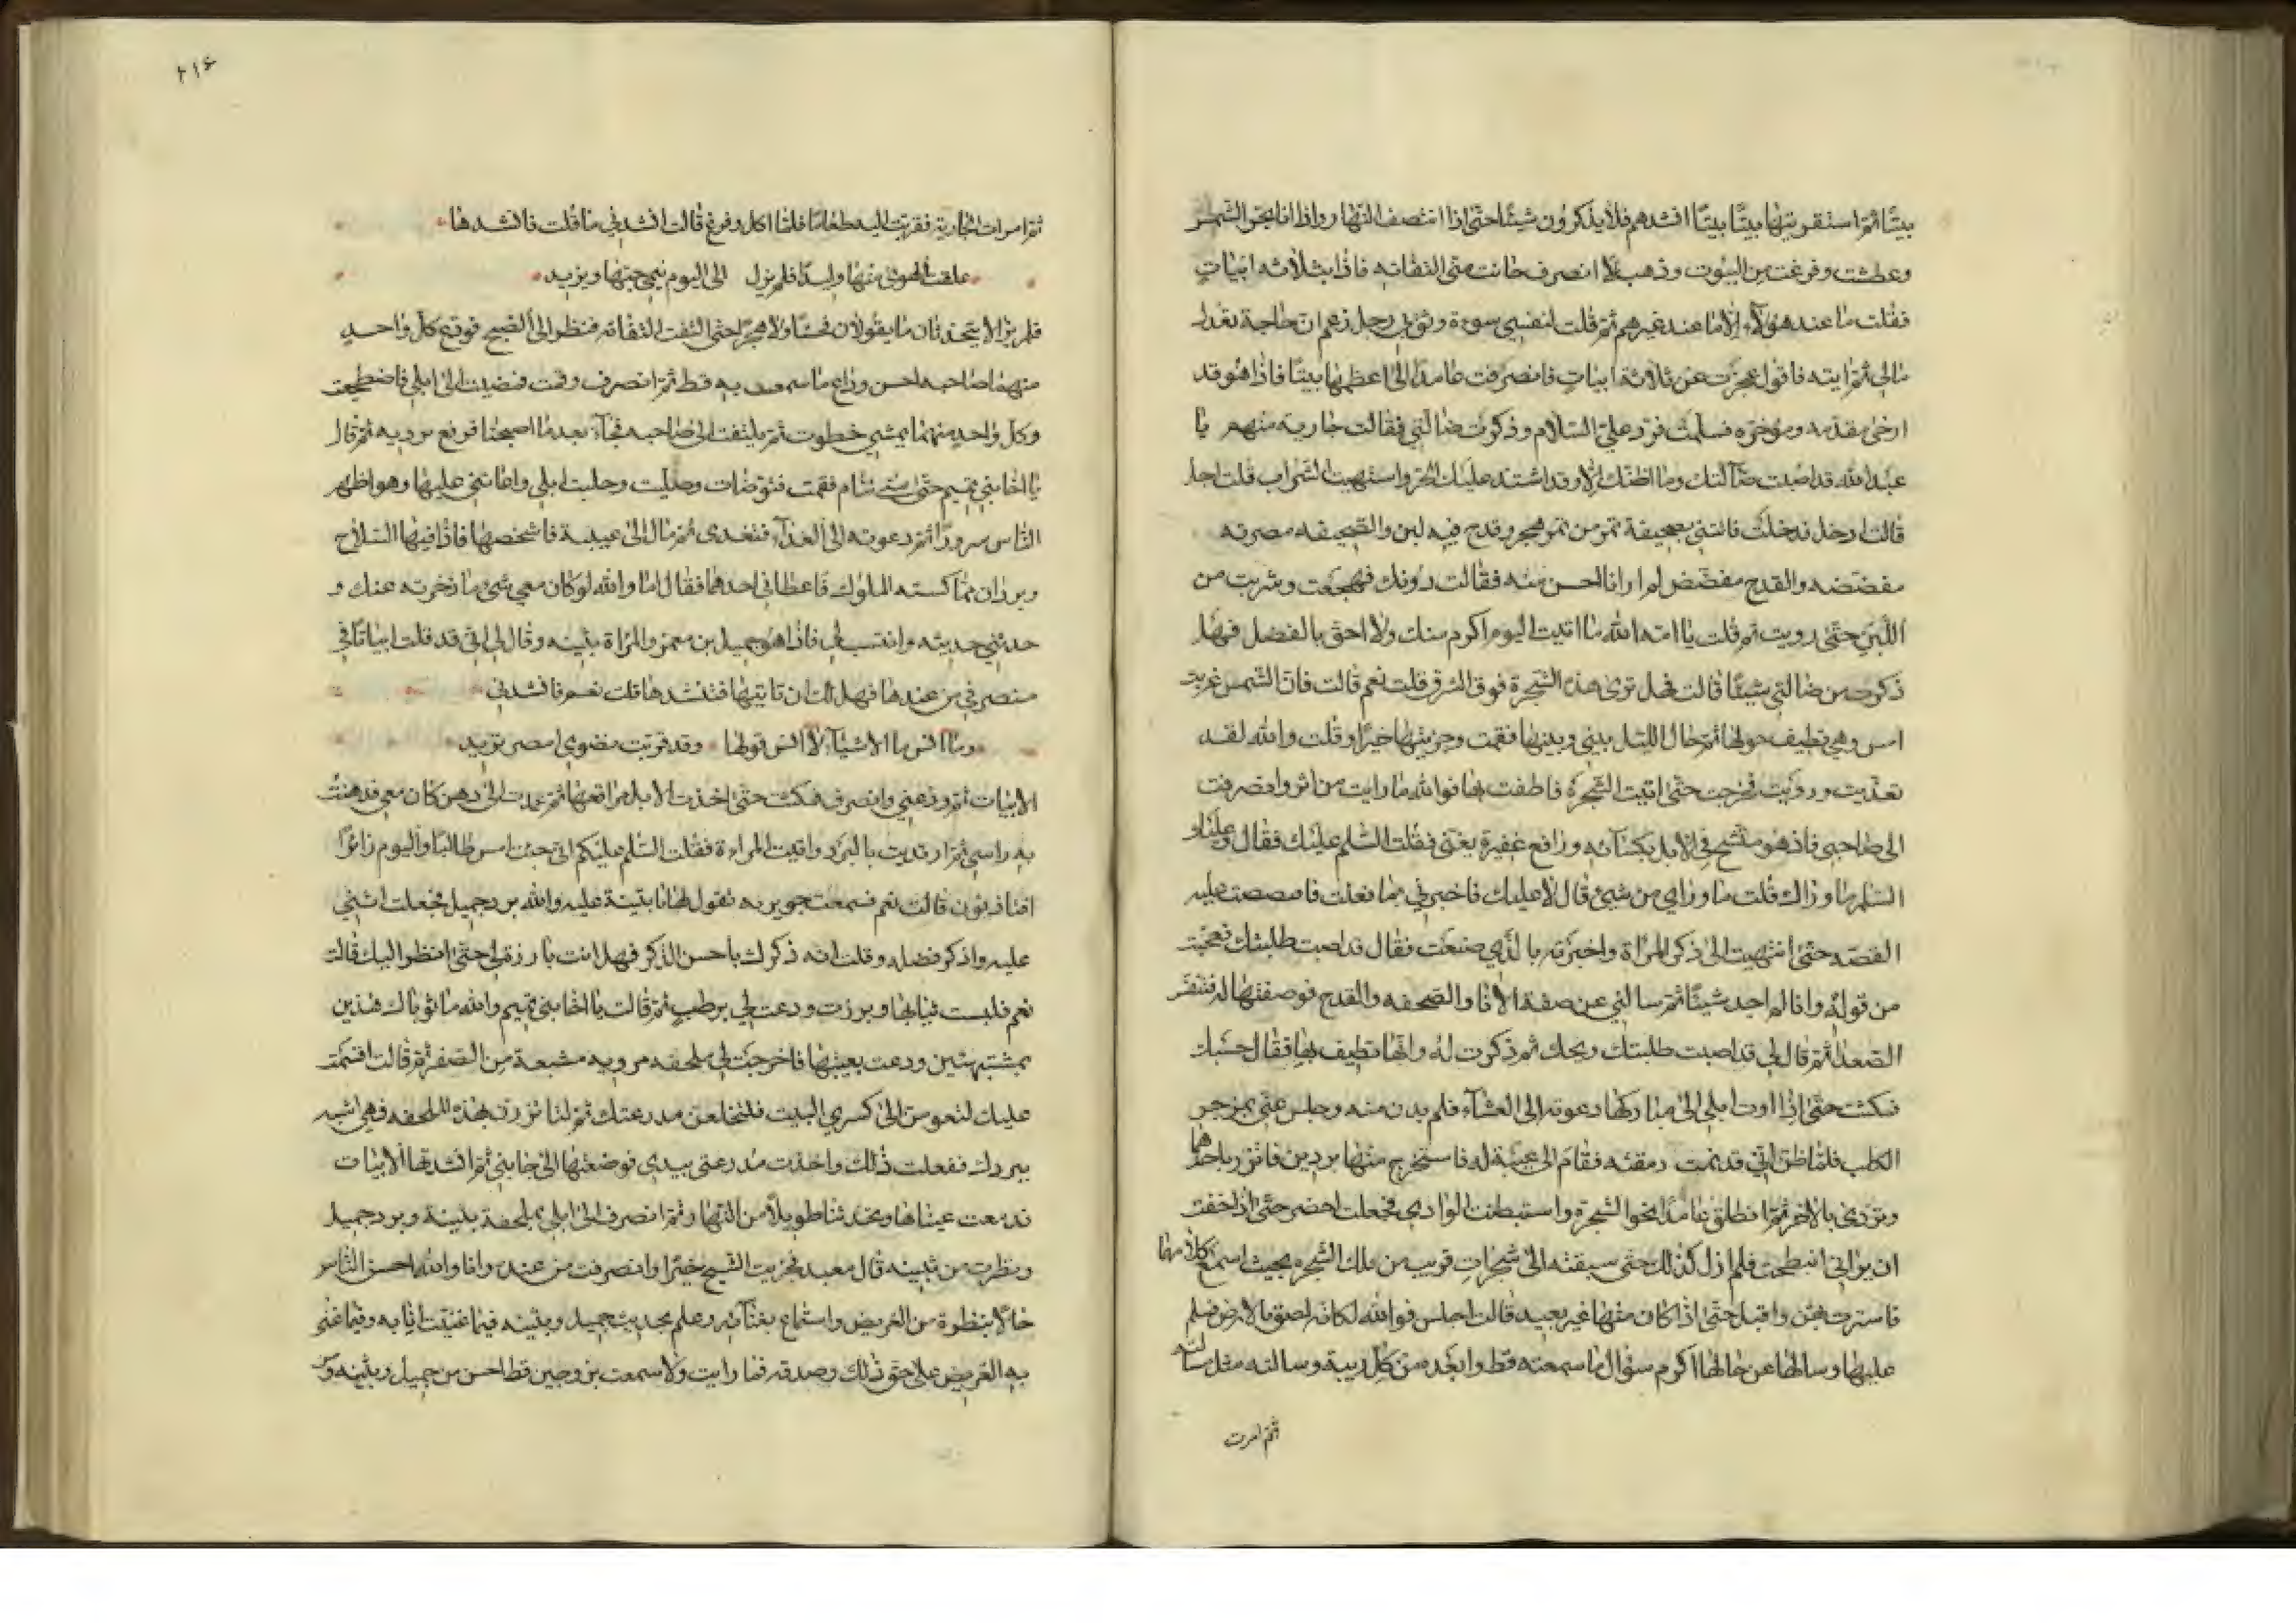 بيتا ثم استقريتها بيتا بيتا انشدهم فلا يذكرون شيئا حتى اذا انتصف النهار واذا انا بحر الشمس
وعطشت وفرغت من البيوت وذهبت لا انصرف حانت منى التفاته فاذا بثلاثه ابيات
فقلت ما عند هؤلاء الا ما عند غيرهم ثم قلت لنفسي سوءة وثق بي رجل زعم ان حاجة تعدل
مالي ثم اتيه فاقول عجزت عن ثلاثة ابيات فانصرفت عامدا الى اعظمها بيتا فاذا هو قد
ارخى مقدمه ومؤخره فسلمت فرد علي السلام وذكرت ضالتي فقالت جاريه منهم يا
عبد الله قد اصبت ضالتك وما اظنك الا وقد اشتد عليك الحر واشتهيت الشراب قلت اجل
قالت ادخل فدخلت فاتتني بصحيفة تمر من تمر هجر وقدح فيه لبن والصحيفه مصريه
مفضضه والقدح مفضض لم ار اناء احسن منه فقالت دونك فهجعت وشربت من
اللبن حتى رويت ثم قلت يا امة الله ما اتيت اليوم اكرم منك ولا احق بالفضل فهل
ذكرت من ضالتي شيئا قالت فهل ترى هذه الشجرة فوق الشرف قلت نعم قالت فان الشمس غربت
امس وهي تطيف حولها ثم حال الليل بيني وبينها فقمت وجزيتها خيرا وقلت والله لقد
تغديت ورويت فخرجت حتى اتيت الشجرة فاطفت بها فوالله ما رايت من اثر وانصرفت
الى صاحبي فاذ هو متشح في الابل بكسائه ورافع عقيرة يغنى فقلت السلم عليك فقال وعليك
السلم ما وراك قلت ما وراي من شيئ قال لا عليك فاخبرني بما فعلت فاقصصت عليه
القصه حتى انتهيت الى ذكر المراة واخبرته بالذي صنعت فقال قد اصبت طلبتك فعجبت
من قوله وانا لم اجد شيئا ثم سالني عن صفة الانا والصحفه والقدح فوصفتها له فتنفس
الصعدا ثم قال لي قد اصبت طلبتك ويحك ثم ذكرت له وانها تطيف بها فقال حسبك
فمكثت حتى اذا اوت ابلي الى مباركها دعوته الى العشاء فلم يدن منه وجلس عني بمزجر
الكلب فلما ظن اني قد نمت رمقته فقام الى عيبة له فاستخرج منها بردين فاتزر باحدهما
وتردى بالاخر ثم انطلق عامدا نحو الشجرة واستبطنت الوادي فجعلت احضر حتى اذا خفت
ان يراني انبطحت فلم ازل كذلك حتى سبقته الى شجرات قريب من تلك الشجره بحيث اسمع كلامهما
فاستترت بهن واقبل حتى اذا كان منها غير بعيد قالت اجلس فوالله لكانه لصق بالارض فسلم
عليها وسالها عن حالها اكرم سؤال ما سمعته قط وابعده من كل ريبة وسالته مثل مسالته
ثم امرت
٢١٤
ثم امرت الجارية فقربت اليه طعاما فلما اكل وفرغ قالت انشدني ما قلت فانشدها
علقت الهوى منها وليدا فلم يزل الى اليوم ينمى حبها ويزيد
فلم يزالا يتحدثان ما يقولان فحشا ولا هجرا حتى التفت التفاته فنظر الى الصبح فودع كل واحد
منهما صاحبه احسن وداع ما سمعت به قط ثم انصرف وقمت فمضيت الى ابلي فاضطجعت
وكل واحد منهما يمشي خطوت ثم يلتفت الى صاحبه فجاء بعد ما اصبحنا فرفع برديه ثم قال
يا اخا بني تميم حتى متى تنام فقمت فتوضات وصليت وحلبت ابلي واعانني عليها وهو اظهر
الناس سرورا ثم دعوته الى الغداء فتغدى ثم مال الى عيبة فاشخصها فاذا فيها السلاح
وبردان مما كسته الملوك فاعطاني احدهما فقال اما والله لو كان معي شئ وما ذخرته عنك و
حدثني حديثه وانتسب لي فاذا هو جميل بن معمر والمراة بثينه وقال لي اني قد قلت ابياتا في
منصرفي من عندها فهل لك ان تاتيها فتنشدها قلت نعم فانشدني
وما انس ما الاشياء لا انس قولها وقد قربت نضوي امصر تريد
الابيات ثم ودعني وانصرف فمكثت حتى اخذت الابل مراتعها ثم عمدت الى دهن كان معي فدهنت
به راسي ثم ارتديت بالبرد واتيت المراءة فقلت السلم عليكم اني جيت امس طالبا واليوم زائرا
افتاذنون قالت نعم فسمعت جويريه تقول لها يا بثينة عليه والله برد جميل فجعلت اثني
عليه واذكر فضله وقلت انه ذكرك باحسن الذكر فهل انت بارزة لي حتى انظر اليك قالت
نعم فلبست ثيابها وبرزت ودعت لي برطب ثم قالت يا اخا بني تميم والله ما ثوباك هذين
بمشتبهين ودعت بعيبتها فاخرجت لي ملحفه مرويه مشبعة من الصفرة قالت اقسمت
عليك لتقومن الى كسري البيت فلتخلعن مدرعتك ثم لتاتزرن بهذه الملحفه فهي اشبه
ببردك ففعلت ذلك واخذت مدرعتى بيدي فوضعتها الى جانبي ثم انشدتها الابيات
فدمعت عيناها وتحدثنا طويلا من النهار ثم انصرف الى ابلي بملحفة بثينة وبرد جميل
ونظرت من بثينه قال معبد فجزيت الشيخ خيرا وانصرفت من عنده وانا والله احسن الناس
حالا بنظرة من الغريض واستماع بغنائه وعلم بحديث جميل وبثينه فيما غنيت انا به وفيما غنى
به الغريض على حق ذلك وصدقه فما رايت ولا سمعت بزوجين قط احسن من جميل وبثينه